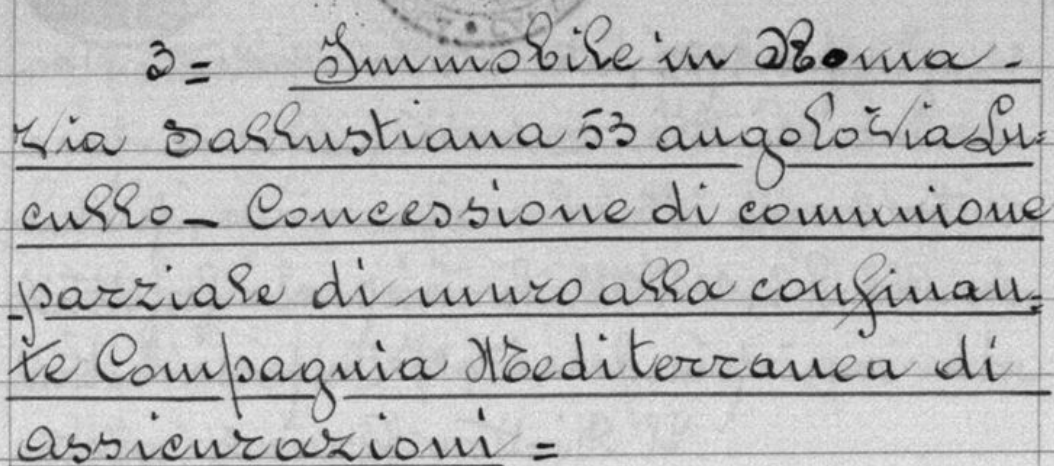 3= Immobile in Roma -
Via Sallustiana 53 angolo Via Lu=
cullo - Concessione di comunione
parziale di muro alla confinan=
te Compagnia Mediterranea di
assicurazioni =